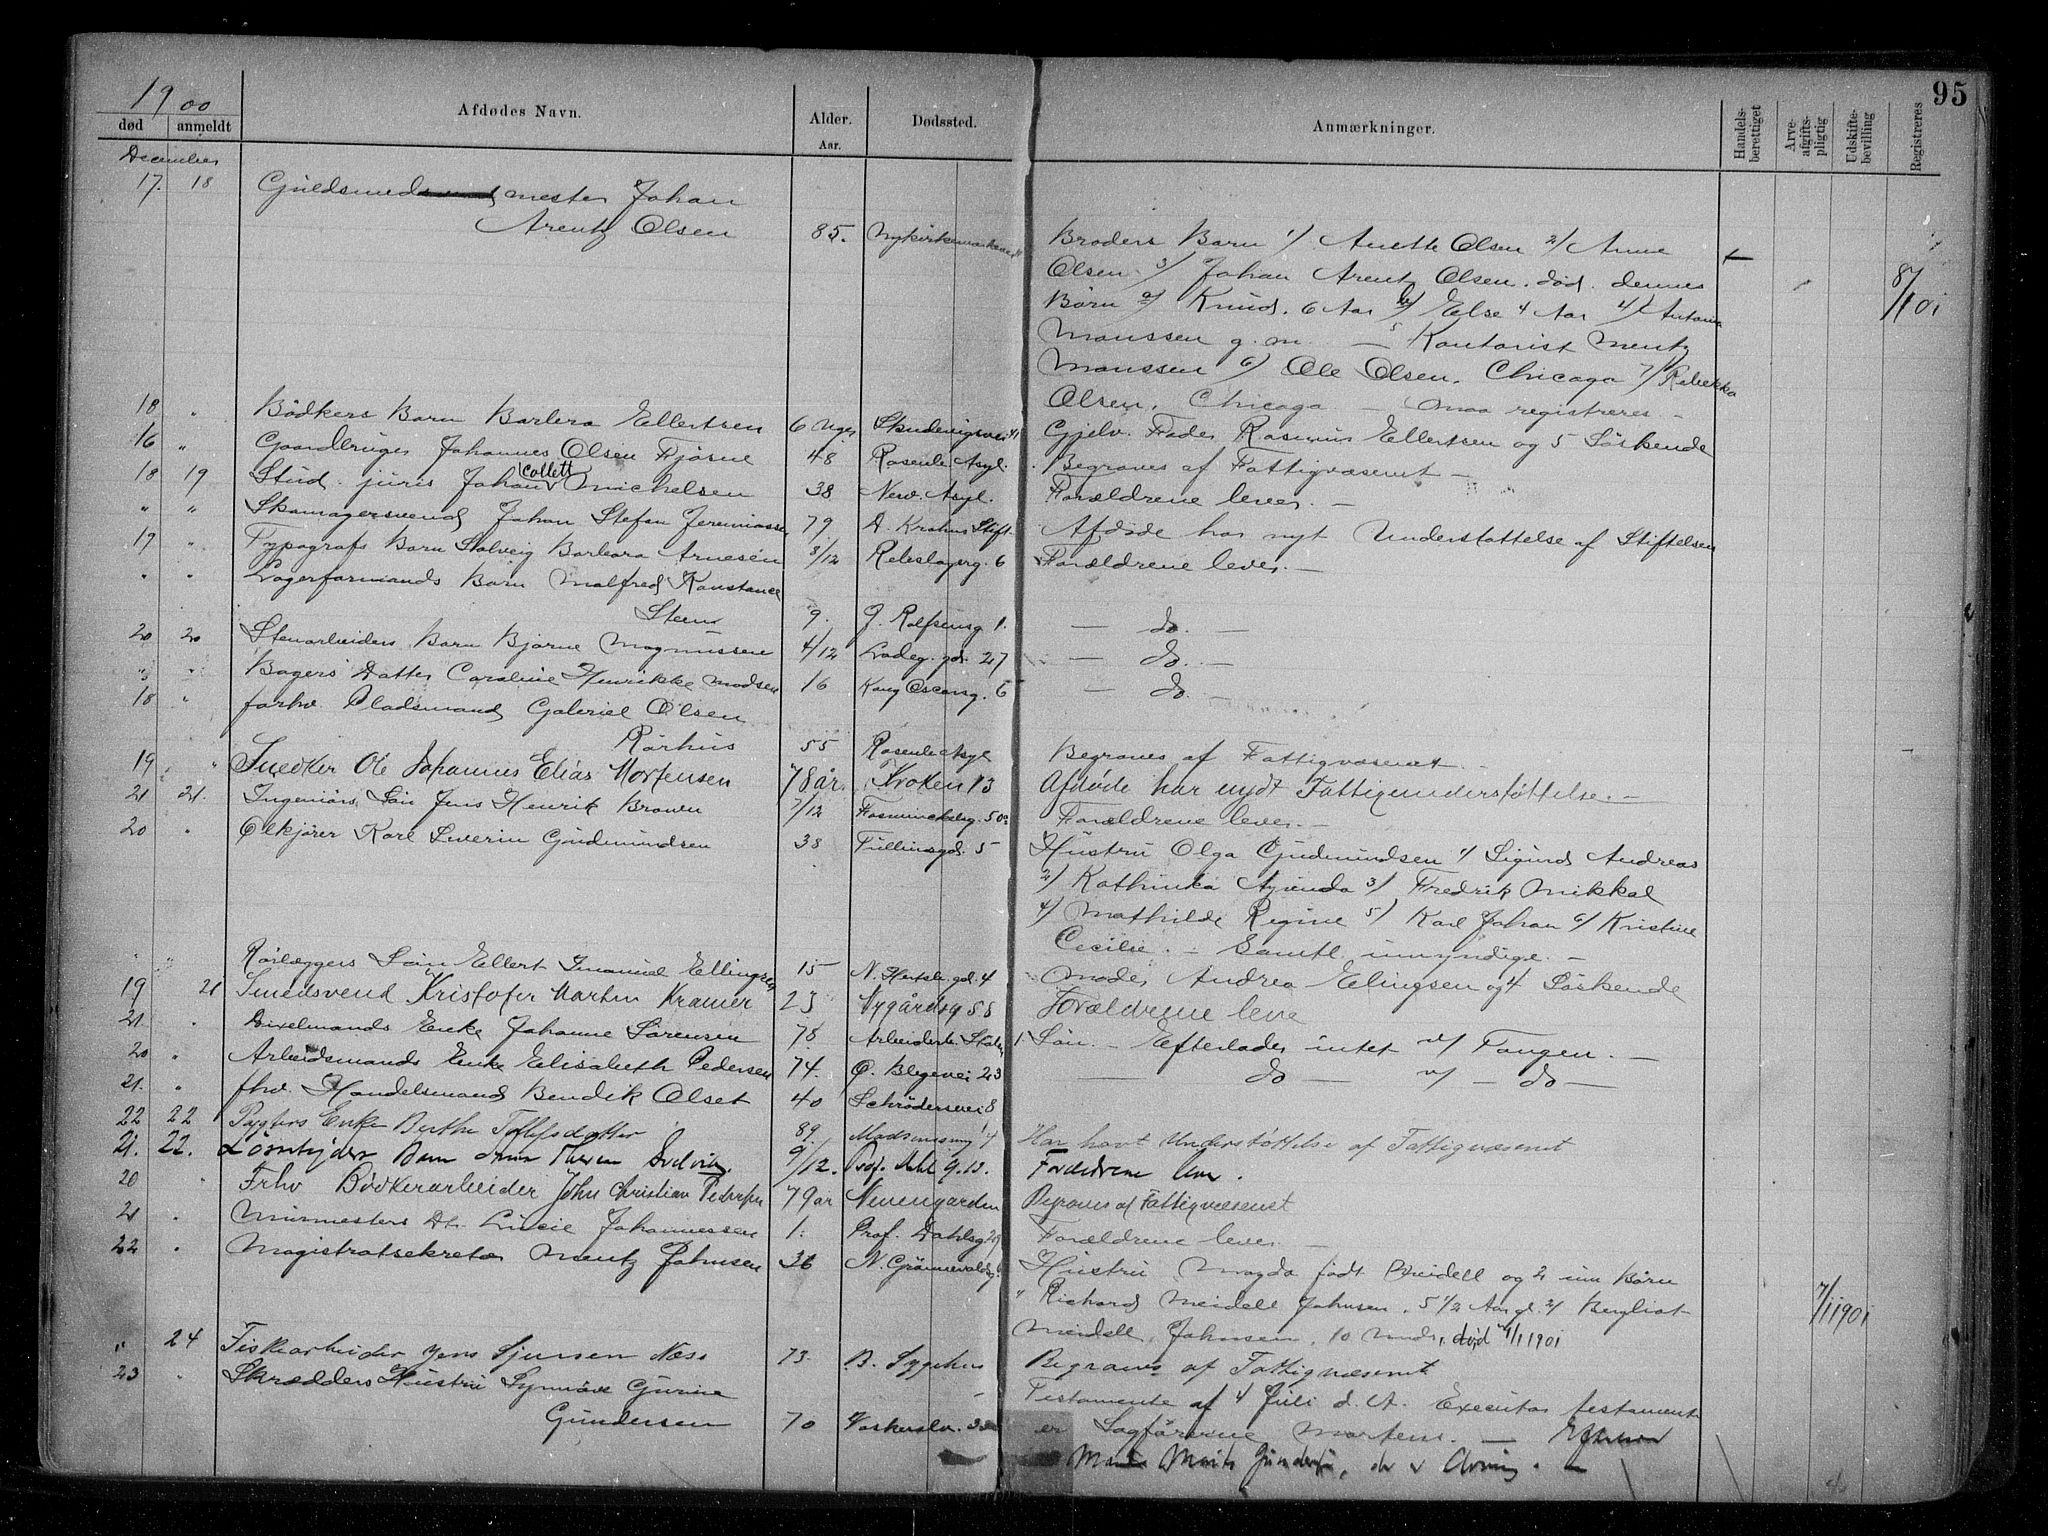 95
1900
død anmeldt Afdødes Navn. Alder. Aar. Dødssted. Anmærkninger. Handels-berettiget Arve-afgifts-pligtig Udskifte-bevilling Registreres
December
17. 18 Guldsmedmester Johan
Arentz Olsen 85. Nykirke
Broders Børn 1/ Anette Olsen 2/ Anne
Olsen 3/ Johan Arentz Olsen. død. dennes 8/1 01
Børn a/ Knud. 6 Aar b/ Else 4 Aar 4/ Antonie
Monssen g. m. — Kontorist Mentz
Monssen 6/ Ole Olsen, Chicago 7/ Rebekka
Olsen, Chicago — Maa registreres —
18 " Bødkers Barn Barbra Ellertsen 6 Uger Skudevigsvei Gjelv. Fader Rasmus Ellertsen og 5 Søskende
16 " Gaardbruger Johannes Olsen Fjøsne 48 Rosenb. Asyl. Begraves af Fattigvæsenet —
18 19 Stud. juris Johan Collett Michelsen 38 Nevr. Asyl. Forældrene lever. —
" " Skomagersvend Johan Stefan Jeremiassen 79 D. Krohns Stift. Afdøde har nyt Understøttelse af Stiftelsen
19 " Typografs Barn Solveig Barbara Arnesen 8/12 Rebslagerg. 6 Forældrene lever. —
" " Lagerformands Barn Malfred Konstance
Steen 9. J. Rolfsensg 1. — do. —
20 20 Stenarbeiders Barn Bjarne Magnussen 4/12 Ladeg. gd. 27 — do. —
" " Bagers Datter Caroline Henrikke Madsen 16 Kong Oscarsg. 6 — do. —
18 " forhv. Pladsmand Gabriel Olsen
Rørhus 55 Rosenb. Asyl Begraves af Fattigvæsenet —
19 " Snedker Ole Johannes Elias Mortensen 78 år. Kroken 13 Afdøde har nydt Fattigunderstøttelse. —
21 21. Ingeniørs Søn Jens Henrik Brown 7/12 Fosswinckelsg. 50 Forældrene lever. —
20 " Ølkjører Karl Severin Gudmundsen 38 Tullinsgd. 5 Hustru Olga Gudmundsen 1/ Sigurd Andreas
2/ Kathinka 3/ Fredrik Mikkal
4/ Mathilde Regine 5/ Karl Johan 6/ Kristine
Cecilie. — Samtl. umyndige. —
" " Rørlæggers Søn Ellert Imanuel Ellingsen 15 N. gd. 4 Moder Andrea Elingsen og 4 Søskende
19 21 Smedsvend Kristofer Martin Kramer 23 Nygårdsg 58 Forældrene leve
21. " Bixelmands Enke Johanne Sørensen 78 1 Søn. — Efterlader intet v/ Tangen. —
20 " Arbeidsmands Enke Elisabeth Pedersen 74. Ø. Blegevei 23 — do — v/ — do —
21. " fhv. Handelsmand Bendik Olset 40 Schrødersvei 8
22 22 Pygters Enke Berthe Tollefsdotter 89. Har havt Understøttelse af Fattigvæsenet
21. 22. Barn 9/12. Forældrene lever.
20 " Frhv Bødkerarbeider John Christian Pedersen 79 ar Nevengarden Begraves af Fattigvæsenet
21 " Murmesters Dt. Lucie Johannessen 1. Prof. Dahlsg 29 Forældrene lever —
22 " Magistratsekretær Mentz Johnsen 36 N. Hustru Magda født Meidell og 2 um Børn
" Richard Meidell Johnsen, 5 1/2 Aar gl. 2/ Bergliot 7/1 1901
Meidell Johnsen, 10 Mndr, død 4/1 1901
" 24 Fiskearbeider Jens Sjursen Næss 73. B. Sygehus Begraves af Fattigvæsenet
23 " Skrædders Hustru Synnøve Gurine Testamente af 4 Juli d. A. Executor testamenti
Gundersen 70 er Sagfører Martens. —
Marits Gundersen, der v Arving. —